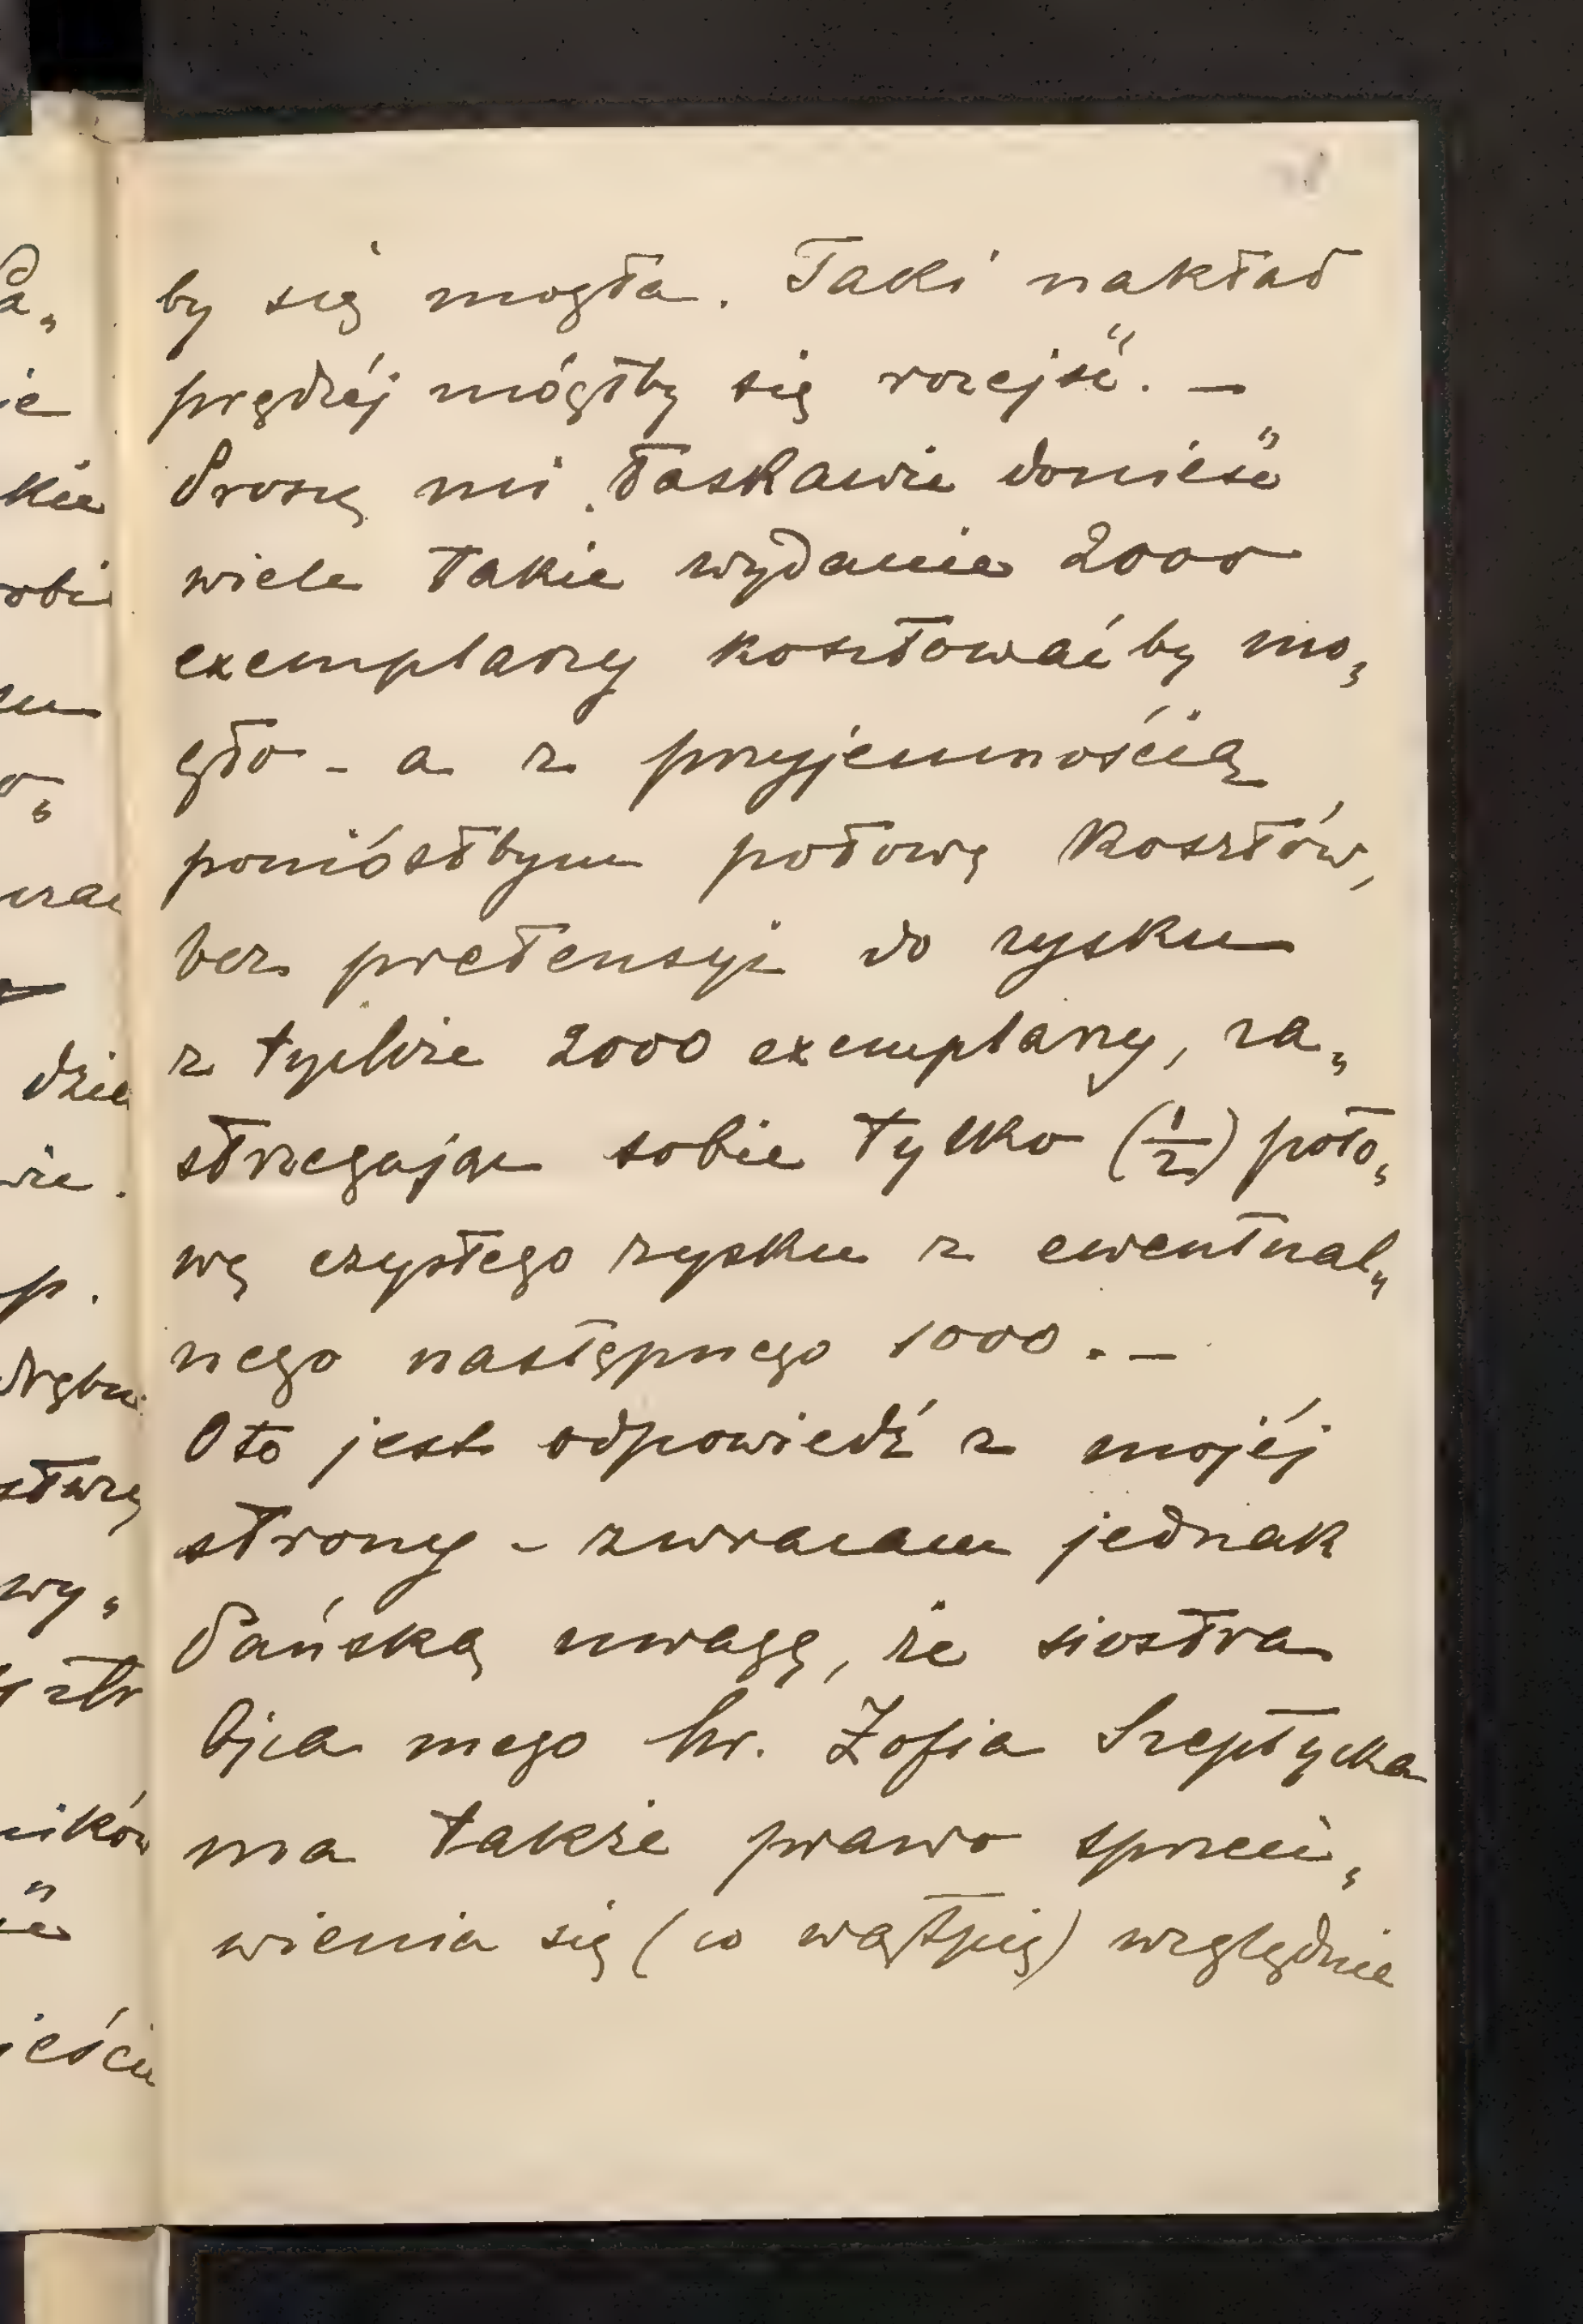 by się mogła. Taki nakład
prędzéj mógłby się rozejść. —
Proszę mi łaskawie donieść
wiele takie wydanie 2000
exemplarzy kosztowaćby mo„
gło - a z przyjemnością
poniósłbym połowę kosztów,
bez pretensyi do zysku
z tychże 2000 exemplarzy, za„
strzegając sobie tylko (1/2) poło„
wę czystego zysku z ewentual„
nego następnego 1000. —
Oto jest odpowiedź z mojéj
strony - zwracam jednak
Pańską uwagę, że siostra
Ojca mego hr. Zofia Szeptycka
ma także prawo sprzeci„
wienia się (co wątpię) względnie